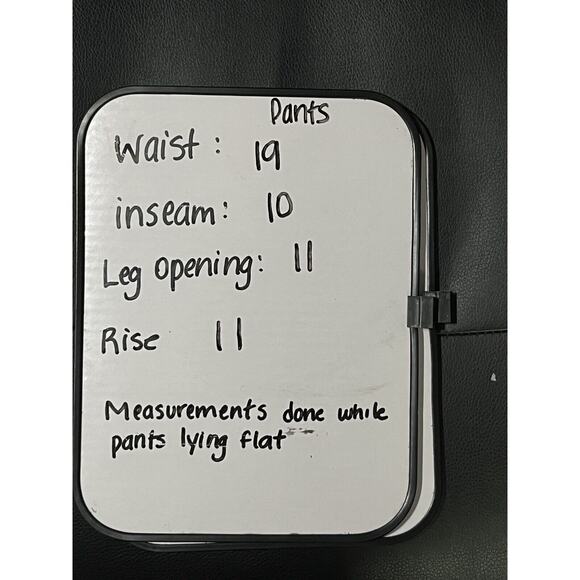 Pants
Waist: 19
inseam: 10
Leg Opening: 11
Rise 11
Measurements done while
pants lying flat